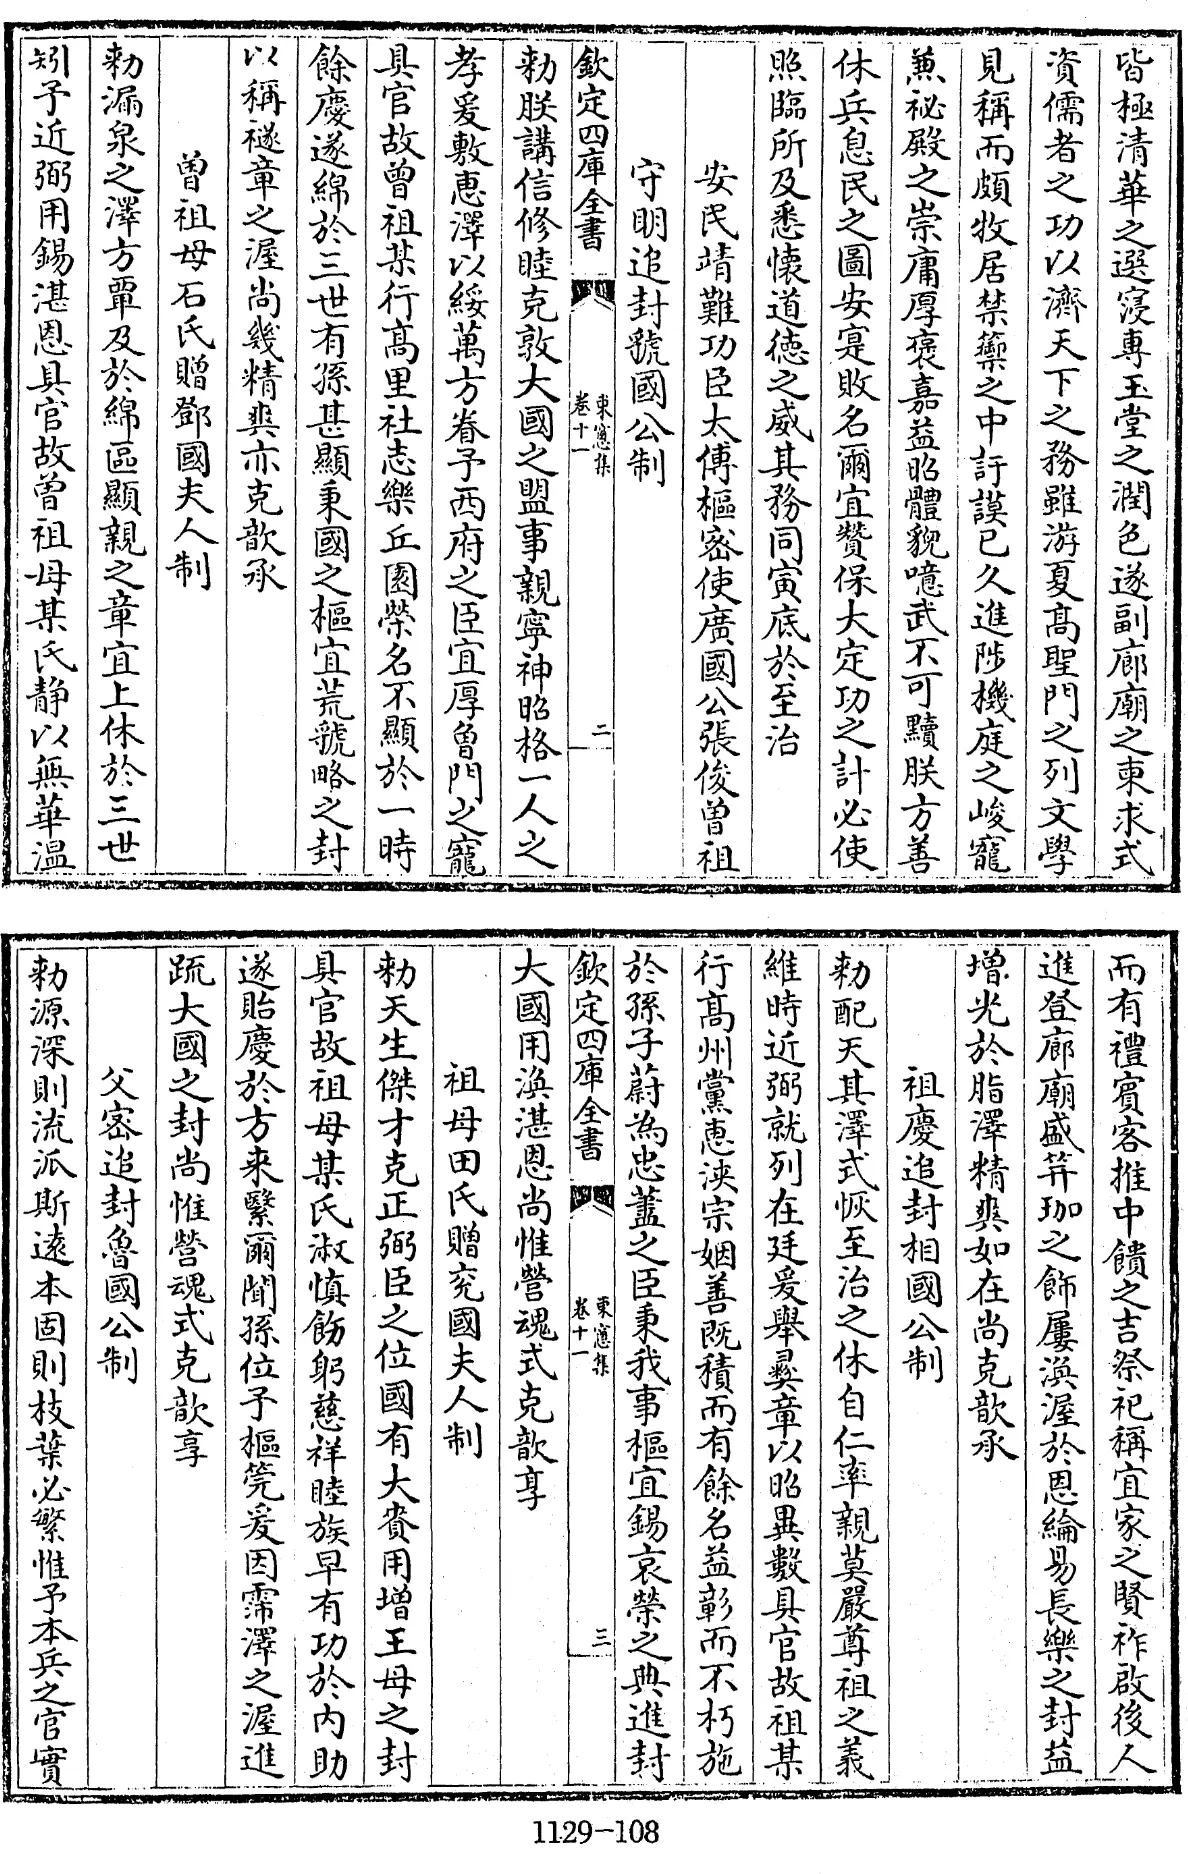 皆極清華之選寖專玉堂之潤色遂副廊廟之柬求式
資儒者之功以濟天下之務雖游夏髙聖門之列文學
見稱而頗牧居禁籞之中訏謨已久進陟機庭之峻寵
兼祕殿之崇庸厚褒嘉益昭體貌噫武不可黷朕方善
休兵息民之圖安寔敗名爾宜贊保大定功之計必使
照臨所及悉懐道徳之威其務同寅底於至治
安民靖難功臣太傅樞密使廣國公張俊曽祖
守明追封虢國公制
欽定四庫全書
東窻集
卷十一
二
勅朕講信修睦克敦大國之盟事親寧神昭格一人之
孝爰敷惠澤以綏萬方眷予西府之臣宜厚曽門之寵
具官故曽祖某行髙里社志樂丘園榮名不顯於一時
餘慶遂綿於三世有孫甚顯秉國之樞宜荒虢略之封
以稱襚章之渥尚幾精爽亦克歆承
曽祖母石氏贈鄧國夫人制
勅漏泉之澤方覃及於綿區顯親之章宜上休於三世
矧予近弼用錫湛恩具官故曽祖母某氏静以無華温
而有禮賓客推中饋之吉祭祀稱宜家之賢祚啟後人
進登廊廟盛笄珈之飾屢渙渥於恩綸易長樂之封益
増光於脂澤精爽如在尚克歆承
祖慶追封相國公制
勅配天其澤式恢至治之休自仁率親莫嚴尊祖之義
維時近弼就列在廷爰舉彛章以昭異數具官故祖某
行髙州黨惠浹宗姻善既積而有餘名益彰而不朽施
於孫子蔚為忠藎之臣秉我事樞宜錫哀榮之典進封
欽定四庫全書
東窻集
卷十一
三
大國用渙湛恩尚惟營魂式克歆享
祖母田氏贈兖國夫人制
勅天生傑才克正弼臣之位國有大賚用增王母之封
具官故祖母某氏淑慎飭躬慈祥睦族早有功於内助
遂貽慶於方来繄爾聞孫位予樞筦爰因霈澤之渥進
疏大國之封尚惟營魂式克歆享
父密追封魯國公制
勅源深則流派斯逺本固則枝葉必繁惟予本兵之官實
1129-108